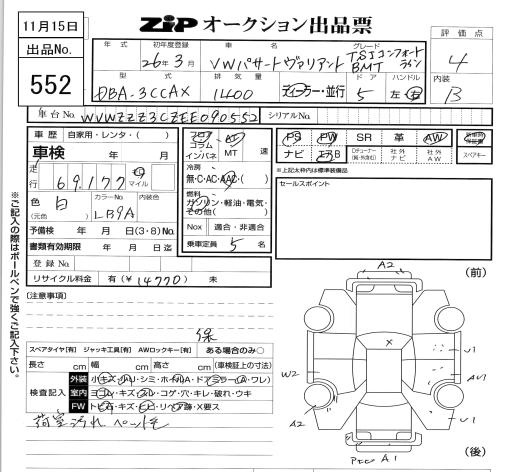 11月15日
ZIP オークション出品票
出品No.
552
年式 初年度登録 車名 グレード
26年3月 VWパサートヴァリアント TSIコンフォートライン BMT
型式 排気量 ドア ハンドル
DBA-3CCAX 1400 ディーラー・並行 5 左・右
評価点
4
内装
B
車台No. WVWZZZ3CZEE090552 シリアルNo.
車歴 自家用・レンタ・( )
車検 年 月
走行 69,177 km マイル
色 白 (元色) カラーNo. LB9A 内装色
予備検 年 月 日(3・8)No.
書類有効期限 年 月 日迄
登録No.
リサイクル料金 有(¥14770) 未
フロア コラム インパネ AT MT 速
冷房
無・C・AC・AAC・( )
燃料
ガソリン・軽油・電気・その他( )
Nox 適合・非適合
乗車定員 5 名
PS PW SR 革 AW
ナビ エアB 社外ナビ 社外AW
スペアキー
※上記太枠内は標準装備品
セールスポイント
※ご記入の際はボールペンで強くご記入下さい。
(注意事項)
保
スペアタイヤ[有] ジャッキ工具[有] AWロックキー[有] ある場合のみ○
長さ cm 幅 cm 高さ cm (車検証上の寸法)
検査記入
外装 小キズ・小凹・シミ・ホイルA・ドアミラー(A・ワレ)
室内 ヨゴレ・キズ・スレ・コゲ・穴・キレ・破れ・ウキ
FW トビ石・キズ・ヒビ・リペア跡・X要ス
荷室汚れ ペット毛
(前)
A2
X
U1
W2
AU1
A2
U1
A1
(後)